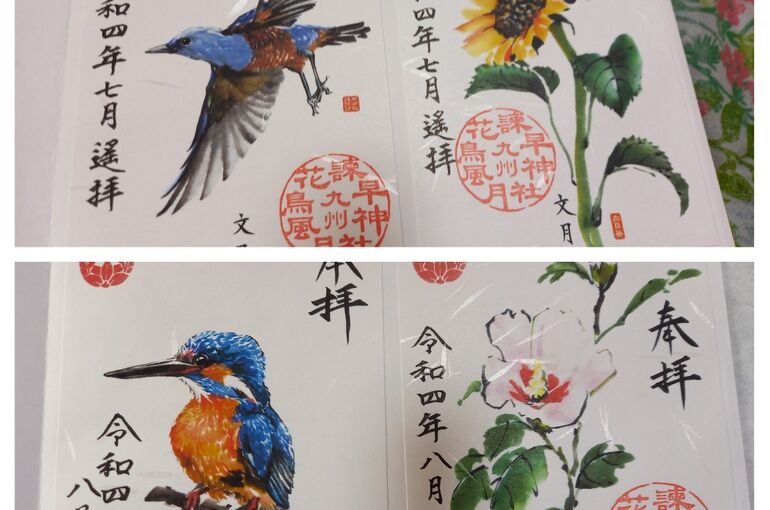 和四年七月遙拝
文
諫早神社
九州
花鳥風月
和四年七月遙拝
諫早神社
九州
花鳥風月
文月
向日葵
拝
令和四
八月
奉拝
令和四年八月
諫
花